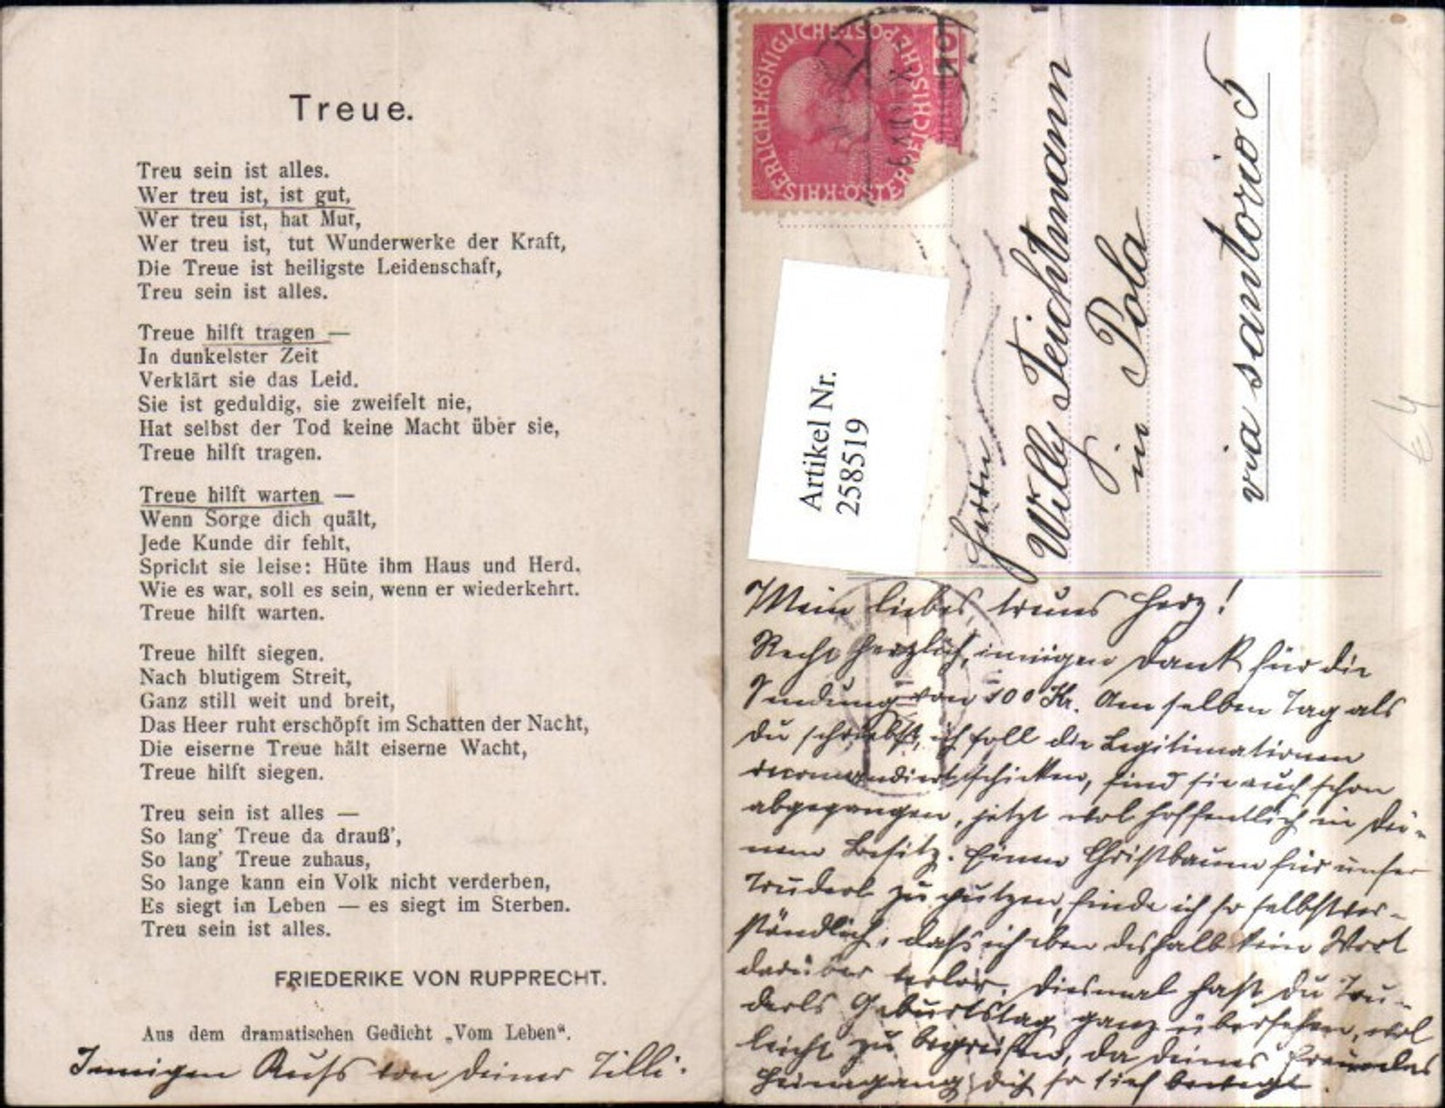 Treue.
Treu sein ist alles.
Wer treu ist, ist gut,
Wer treu ist, hat Mut,
Wer treu ist, tut Wunderwerke der Kraft,
Die Treue ist heiligste Leidenschaft,
Treu sein ist alles.
Treue hilft tragen —
In dunkelster Zeit
Verklärt sie das Leid.
Sie ist geduldig, sie zweifelt nie,
Hat selbst der Tod keine Macht über sie,
Treue hilft tragen.
Treue hilft warten —
Wenn Sorge dich quält,
Jede Kunde dir fehlt,
Spricht sie leise: Hüte ihm Haus und Herd.
Wie es war, soll es sein, wenn er wiederkehrt.
Treue hilft warten.
Treue hilft siegen.
Nach blutigem Streit,
Ganz still weit und breit,
Das Heer ruht erschöpft im Schatten der Nacht,
Die eiserne Treue hält eiserne Wacht,
Treue hilft siegen.
Treu sein ist alles —
So lang' Treue da drauß',
So lang' Treue zuhaus,
So lange kann ein Volk nicht verderben,
Es siegt im Leben — es siegt im Sterben.
Treu sein ist alles.
FRIEDERIKE VON RUPPRECHT.
Aus dem dramatischen Gedicht „Vom Leben“.
Innigen Kuss von deiner Tilli.
KAISERLICHE KÖNIGLICHE POST
ÖSTERREICHISCHE
10
Artikel Nr.
258519
Herrn
Willy Teichtmann
in Pola
via santorio 5
€ 4
Mein liebes treues Herz!
Recht herzlich, innigen Dank für die
Sendung von 100 Kr. Am selben Tag als
du schriebst, ich soll die Legitimationen
recomandiert schicken, sind sie auch schon
abgegangen, jetzt wol hoffentlich in dei-
nem Besitz. Einen Christbaum für unser
Truderl zu putzen, finde ich so selbstver-
ständlich, dass ich eben deshalb kein Wort
darüber verlor. Diesmal hast du Tru-
derls Geburtstag ganz übersehen, viel
leicht zu begreifen, da deines Freundes
Heimgang dich so tief bewegt.